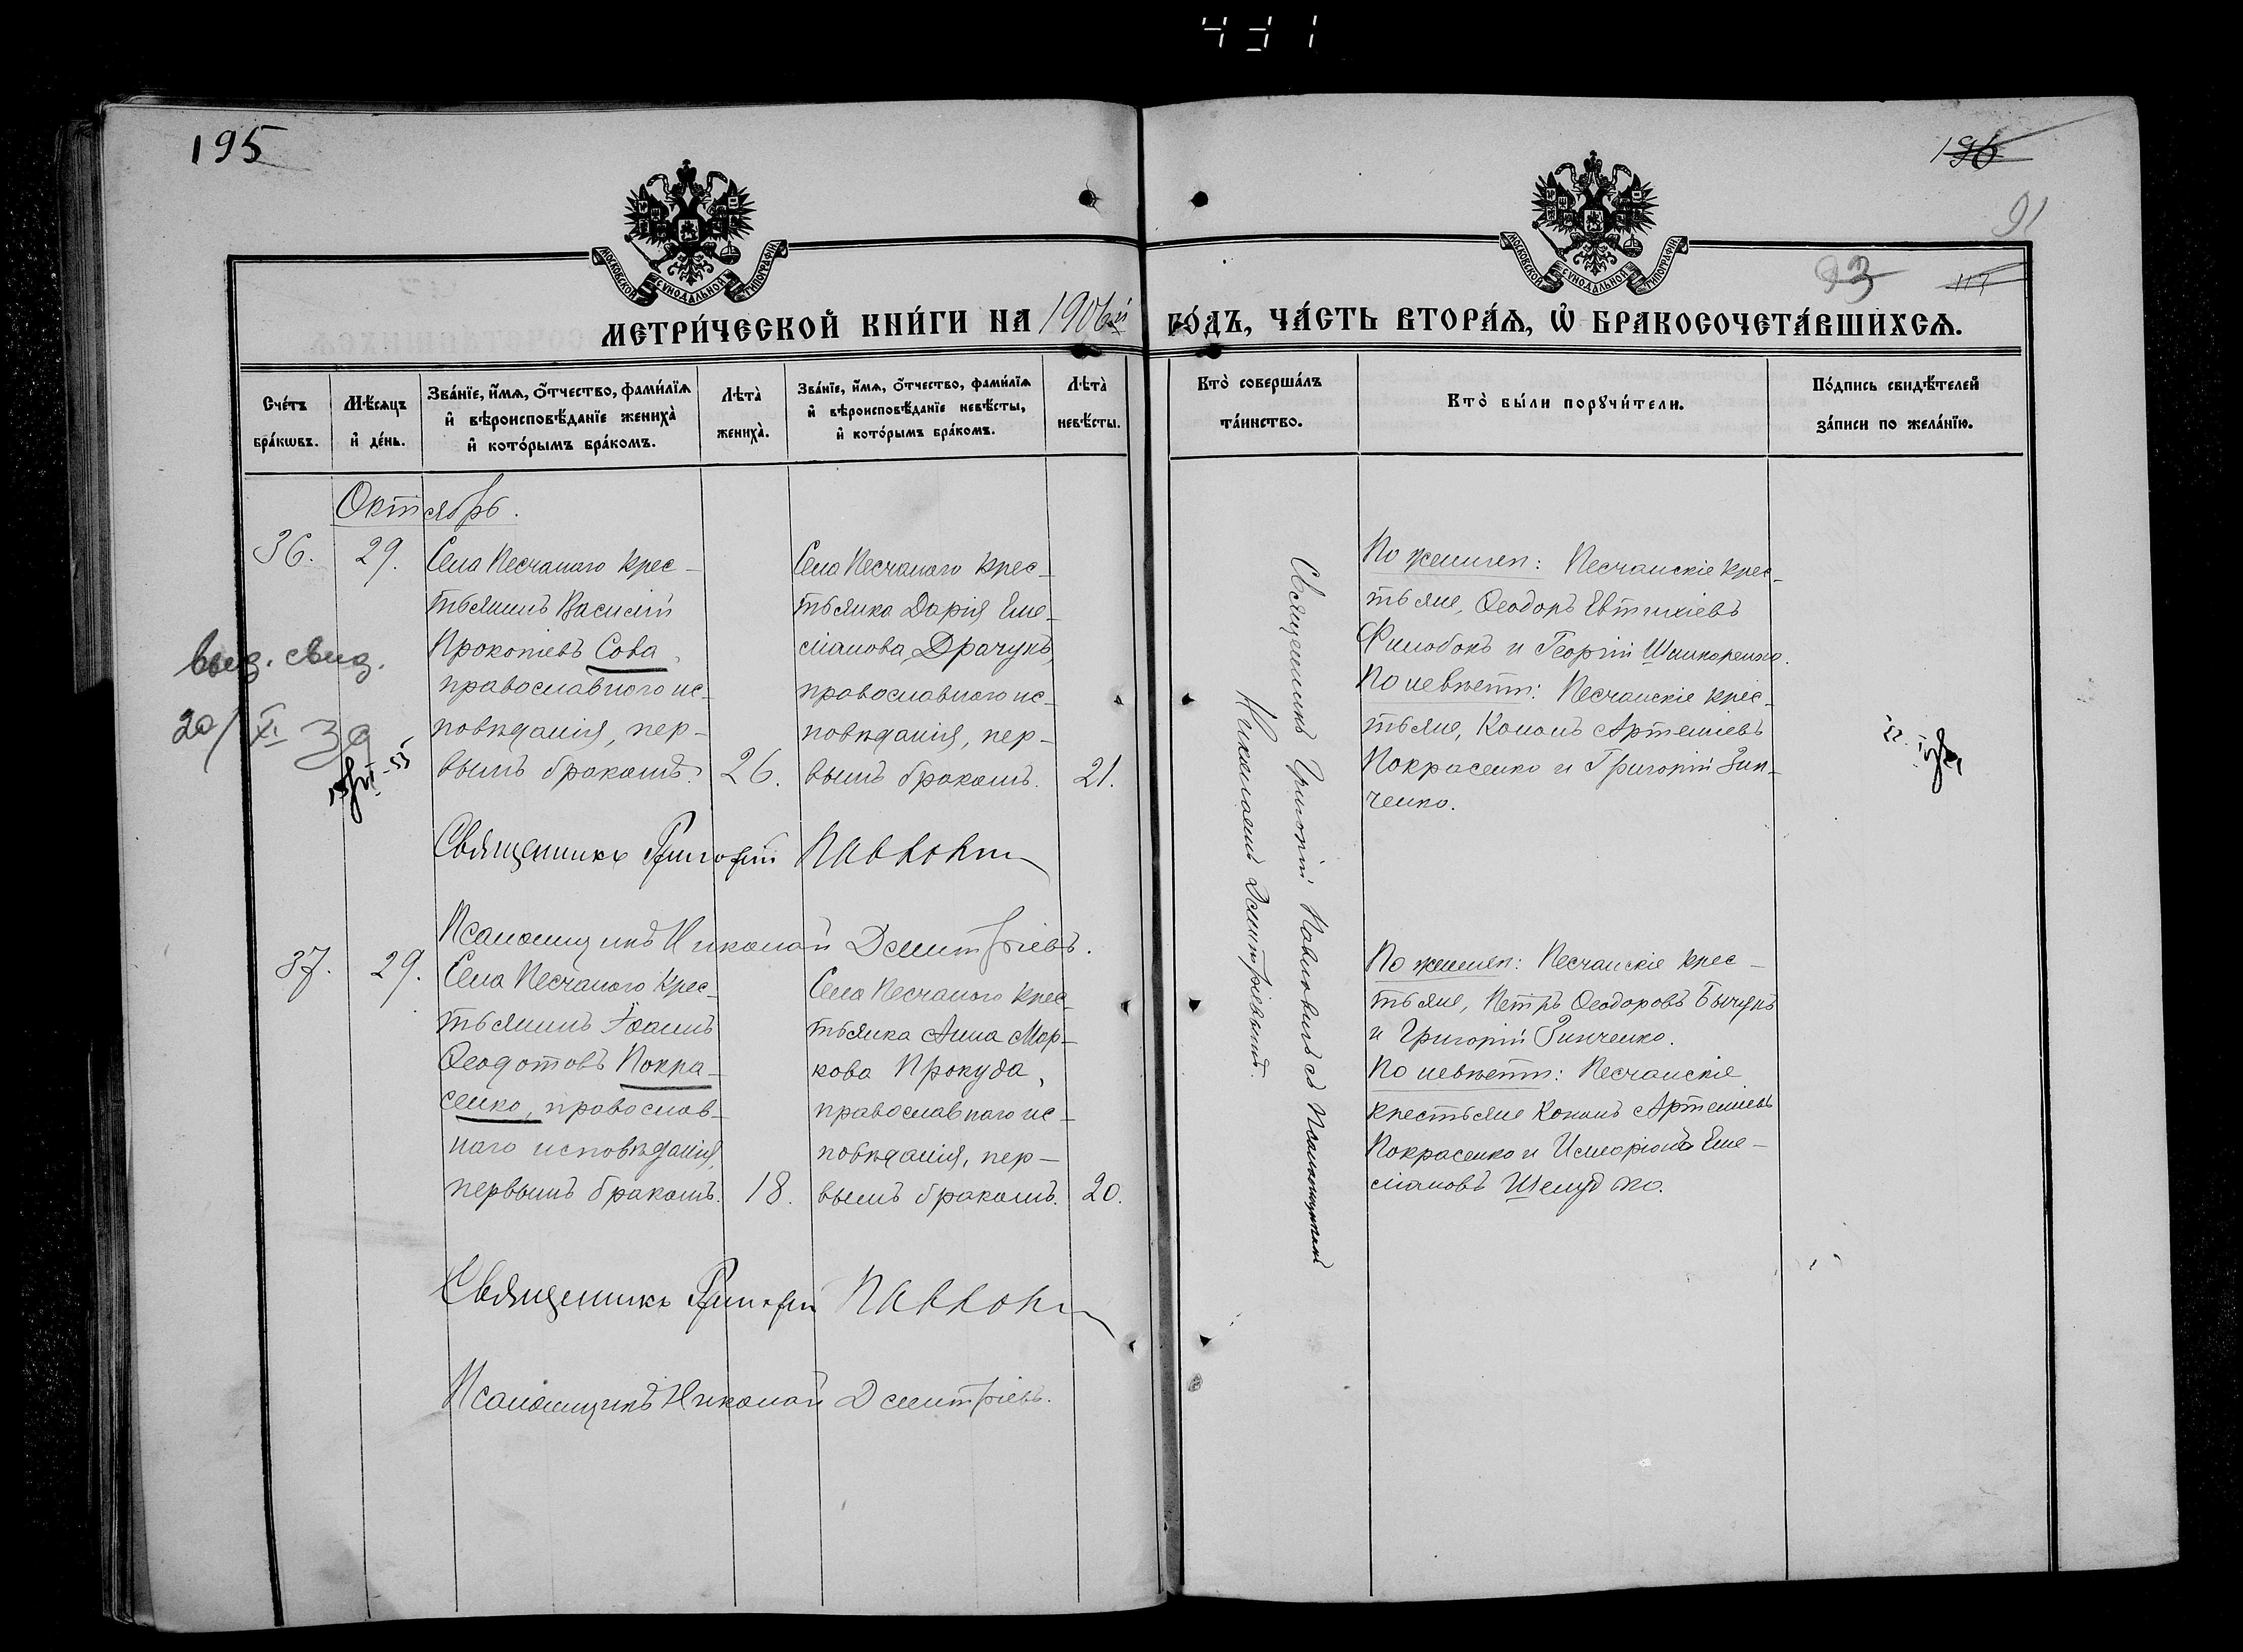 431
195
196
91
93
МОСКОВСКОЙ СУНОДАЛЬНОЙ ТИПОГРАФІИ
МОСКОВСКОЙ СУНОДАЛЬНОЙ ТИПОГРАФІИ
МЕТРИ́ЧЕСКОЙ КНИ́ГИ НА 1906й ГО́ДЪ, ЧА́СТЬ ВТОРА́Ѧ, Ѽ БРАКОСОЧЕТА́ВШИХСѦ.
Сче́тъ бра́кѡвъ.
Мѣ́сѧцъ и҆ де́нь.
Зва́нїе, и҆́мѧ, ѻ҆́тчество, фами́лїѧ и҆ вѣроисповѣ́данїе жениха̀ и҆ кото́рымъ бра́комъ.
Лѣта̀ жениха̀.
Зва́нїе, и҆́мѧ, ѻ҆́тчество, фами́лїѧ и҆ вѣроисповѣ́данїе невѣ́сты, и҆ кото́рымъ бра́комъ.
Лѣта̀ невѣ́сты.
Кто̀ соверша́лъ та́инство.
Кто̀ бы́ли порꙋчи́тели.
По́дпись свидѣ́телей за́писи по жела́нїю.
Октябрь.
36.
29.
Села Песчаного крес-
тьянинъ Василій
Прокопіевъ Сова,
православного ис-
повѣданія, пер-
вымъ бракомъ.
26.
Села Песчаного крес-
тьянка Дарія Еме-
ліанова Драчукъ,
православного ис-
повѣданія, пер-
вымъ бракомъ.
21.
выд. свид.
20/XI 39
Священникъ Григорій Павловичъ съ Псаломщикомъ
Николаемъ Димитріевымъ.
По женихѣ: Песчанскіе крес-
тьяне, Ѳеодоръ Евтихіевъ
и Георгій
По невѣстѣ: Песчанскіе крес-
тьяне, Кононъ Артеміевъ
Покрасенко и Григорій Зин-
ченко.
Священникъ Григорій Павлович
Псаломщикъ Николай Димитріевъ.
37.
29.
Села Песчаного крес-
тьянинъ Іоаннъ
Ѳеодотовъ Покра-
сенко, православ-
наго исповѣданія,
первымъ бракомъ.
18.
Села Песчаного крес-
тьянка Анна Мар-
кова Прокуда,
православнаго ис-
повѣданія, пер-
вымъ бракомъ.
20.
По женихѣ: Песчанскіе крес-
тьяне, Петръ Ѳеодоровъ Бычукъ
и Григорій Зинченко.
По невѣстѣ: Песчанскіе
крестьяне Кононъ Артеміевъ
Покрасенко и Еме-
ліановъ
Священникъ Григорій Павлович
Псаломщикъ Николай Димитріевъ.